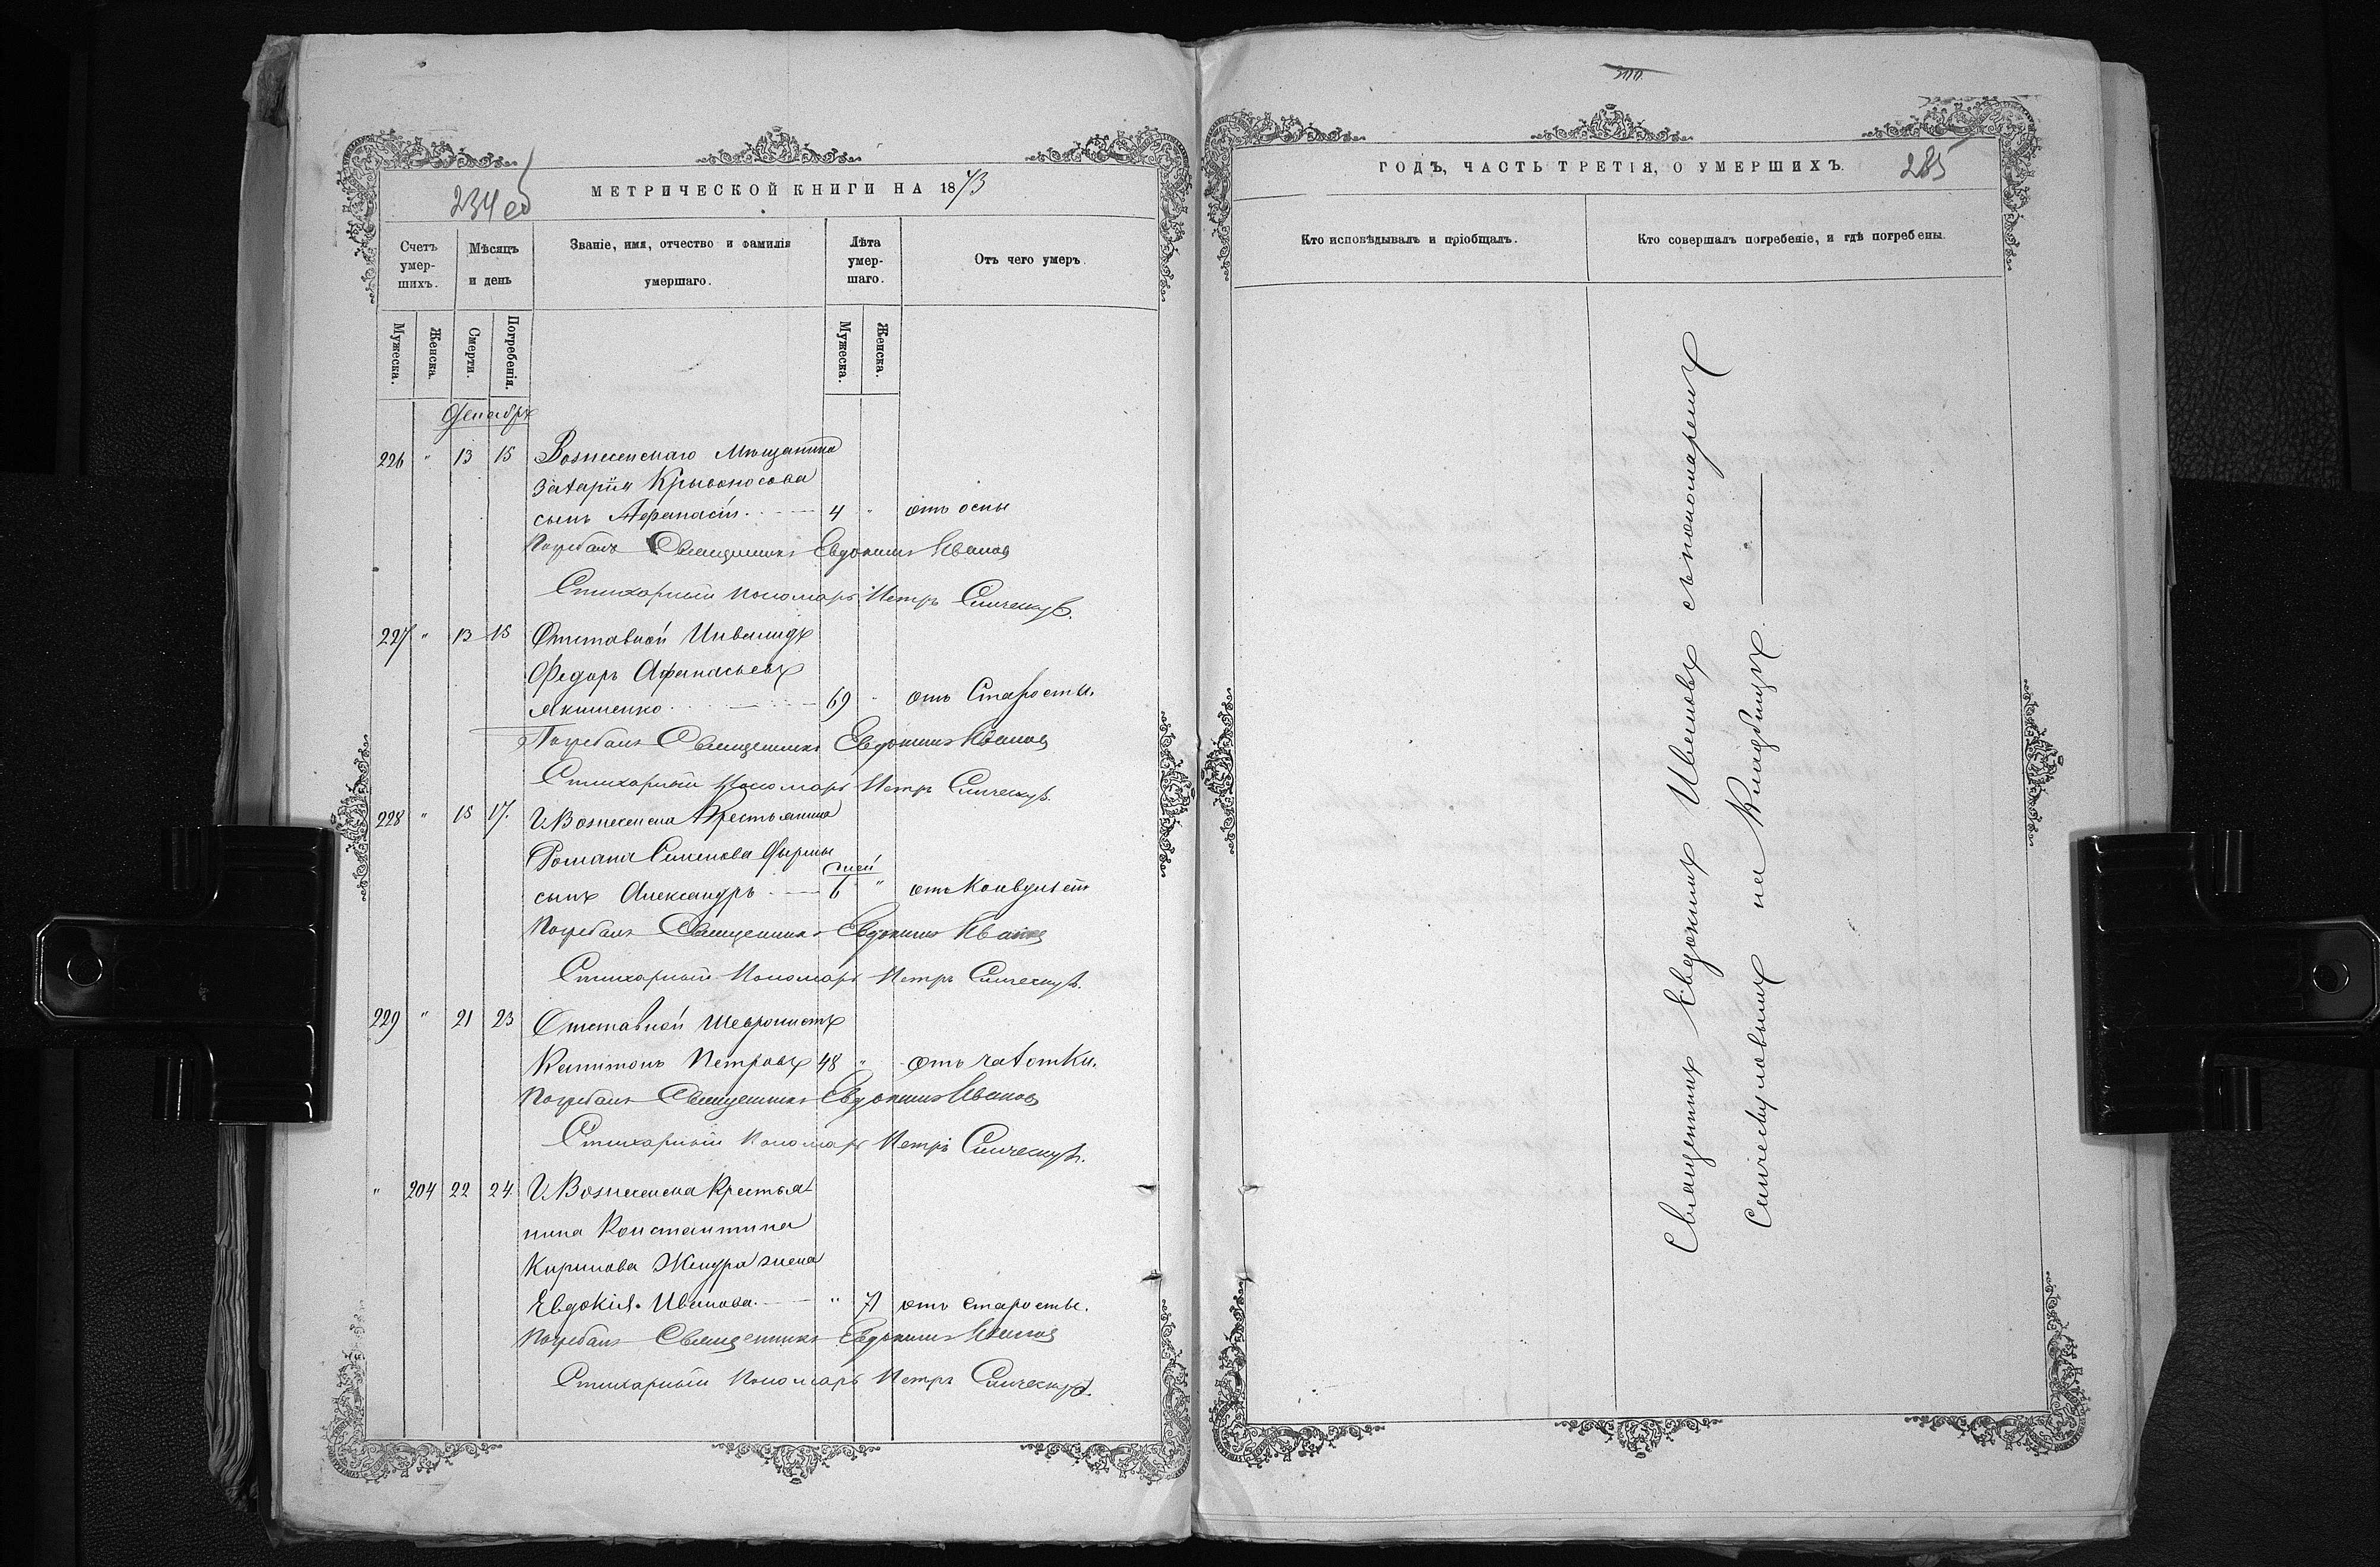 234 об
МЕТРИЧЕСКОЙ КНИГИ НА 1873
Счетъ умер-шихъ.
Мѣсяцъ и день
Званіе, имя, отчество и фамилія умершаго.
Лѣта умер-шаго.
Отъ чего умеръ.
Мужеска.
Женска.
Смерти.
Погребенія.
Мужеска.
Женска.
Декабрь
226 " 13 15 Вознесенскаго Мѣщанина
Захарія Кривоносова
сынъ Афанасій. 4 " отъ оспы
Погребалъ Священникъ Евдокимъ Ивановъ
Стихарный Пономарь Петръ
227 " 13 15 Отставной Инвалидъ
Федоръ Афанасьевъ
Якименко 69 " отъ Старости.
Погребалъ Священникъ Евдокимъ Ивановъ
Стихарный Пономарь Петръ
228 " 15 17. Г. Вознесенска Крестьянина
Романа Семенова
дней
сынъ Александръ 6 " отъ Конвульсій
Погребалъ Священникъ Евдокимъ Ивановъ
Стихарный Пономарь Петръ
229 " 21 23 Отставной Шевронистъ
Капитонъ Петровъ 48 " отъ чахотки.
Погребалъ Священникъ Евдокимъ Ивановъ
Стихарный Пономарь Петръ
" 204 22 24 Г. Вознесенска Крестья-
нина Константина
Кирилова жена
Евдокія Иванова. " 71 отъ старости.
Погребалъ Священникъ Евдокимъ Ивановъ
Стихарный Пономарь Петръ
300
ГОДЪ, ЧАСТЬ ТРЕТІЯ, О УМЕРШИХЪ.
285
Кто исповѣдывалъ и пріобщалъ.
Кто совершалъ погребеніе, и гдѣ погребены.
Священникъ Евдокимъ Ивановъ съ пономаремъ
на Кладбищѣ.